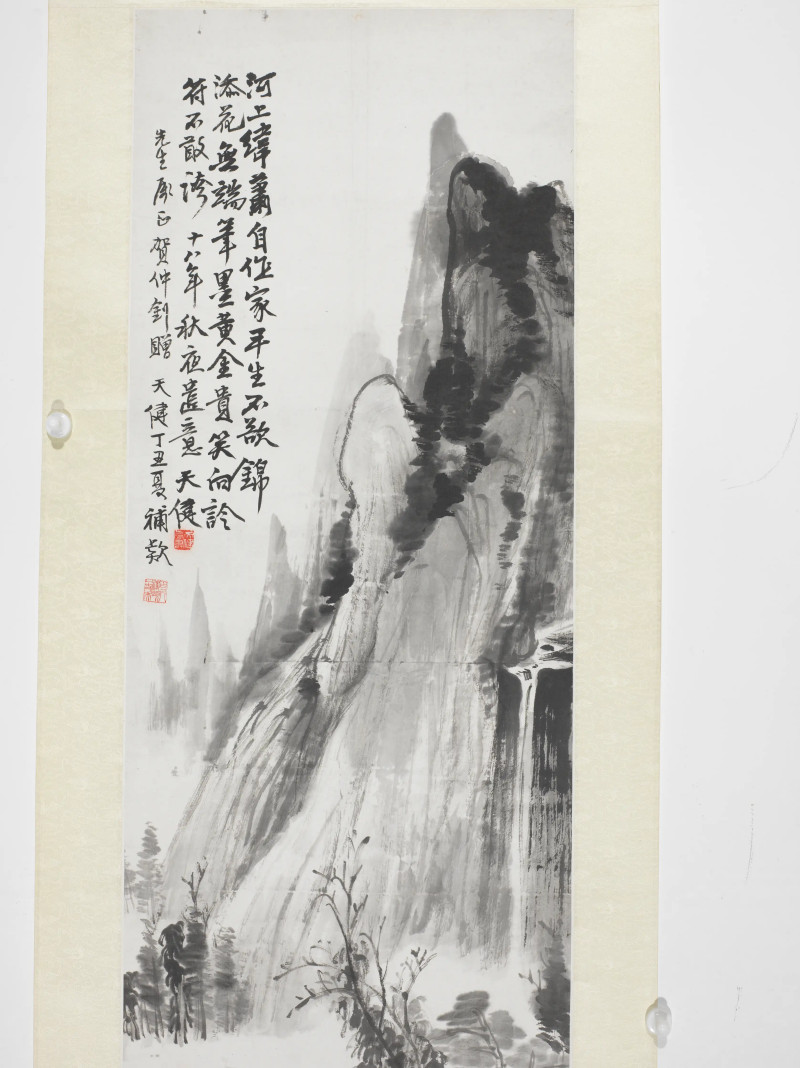 河上緯蕭自作家平生不欲錦
添花無端筆墨黃金貴笑向詅
符不敢誇 十八年秋夜遣意 天健
先生廌正 賀仲釗贈 天健丁丑夏補款